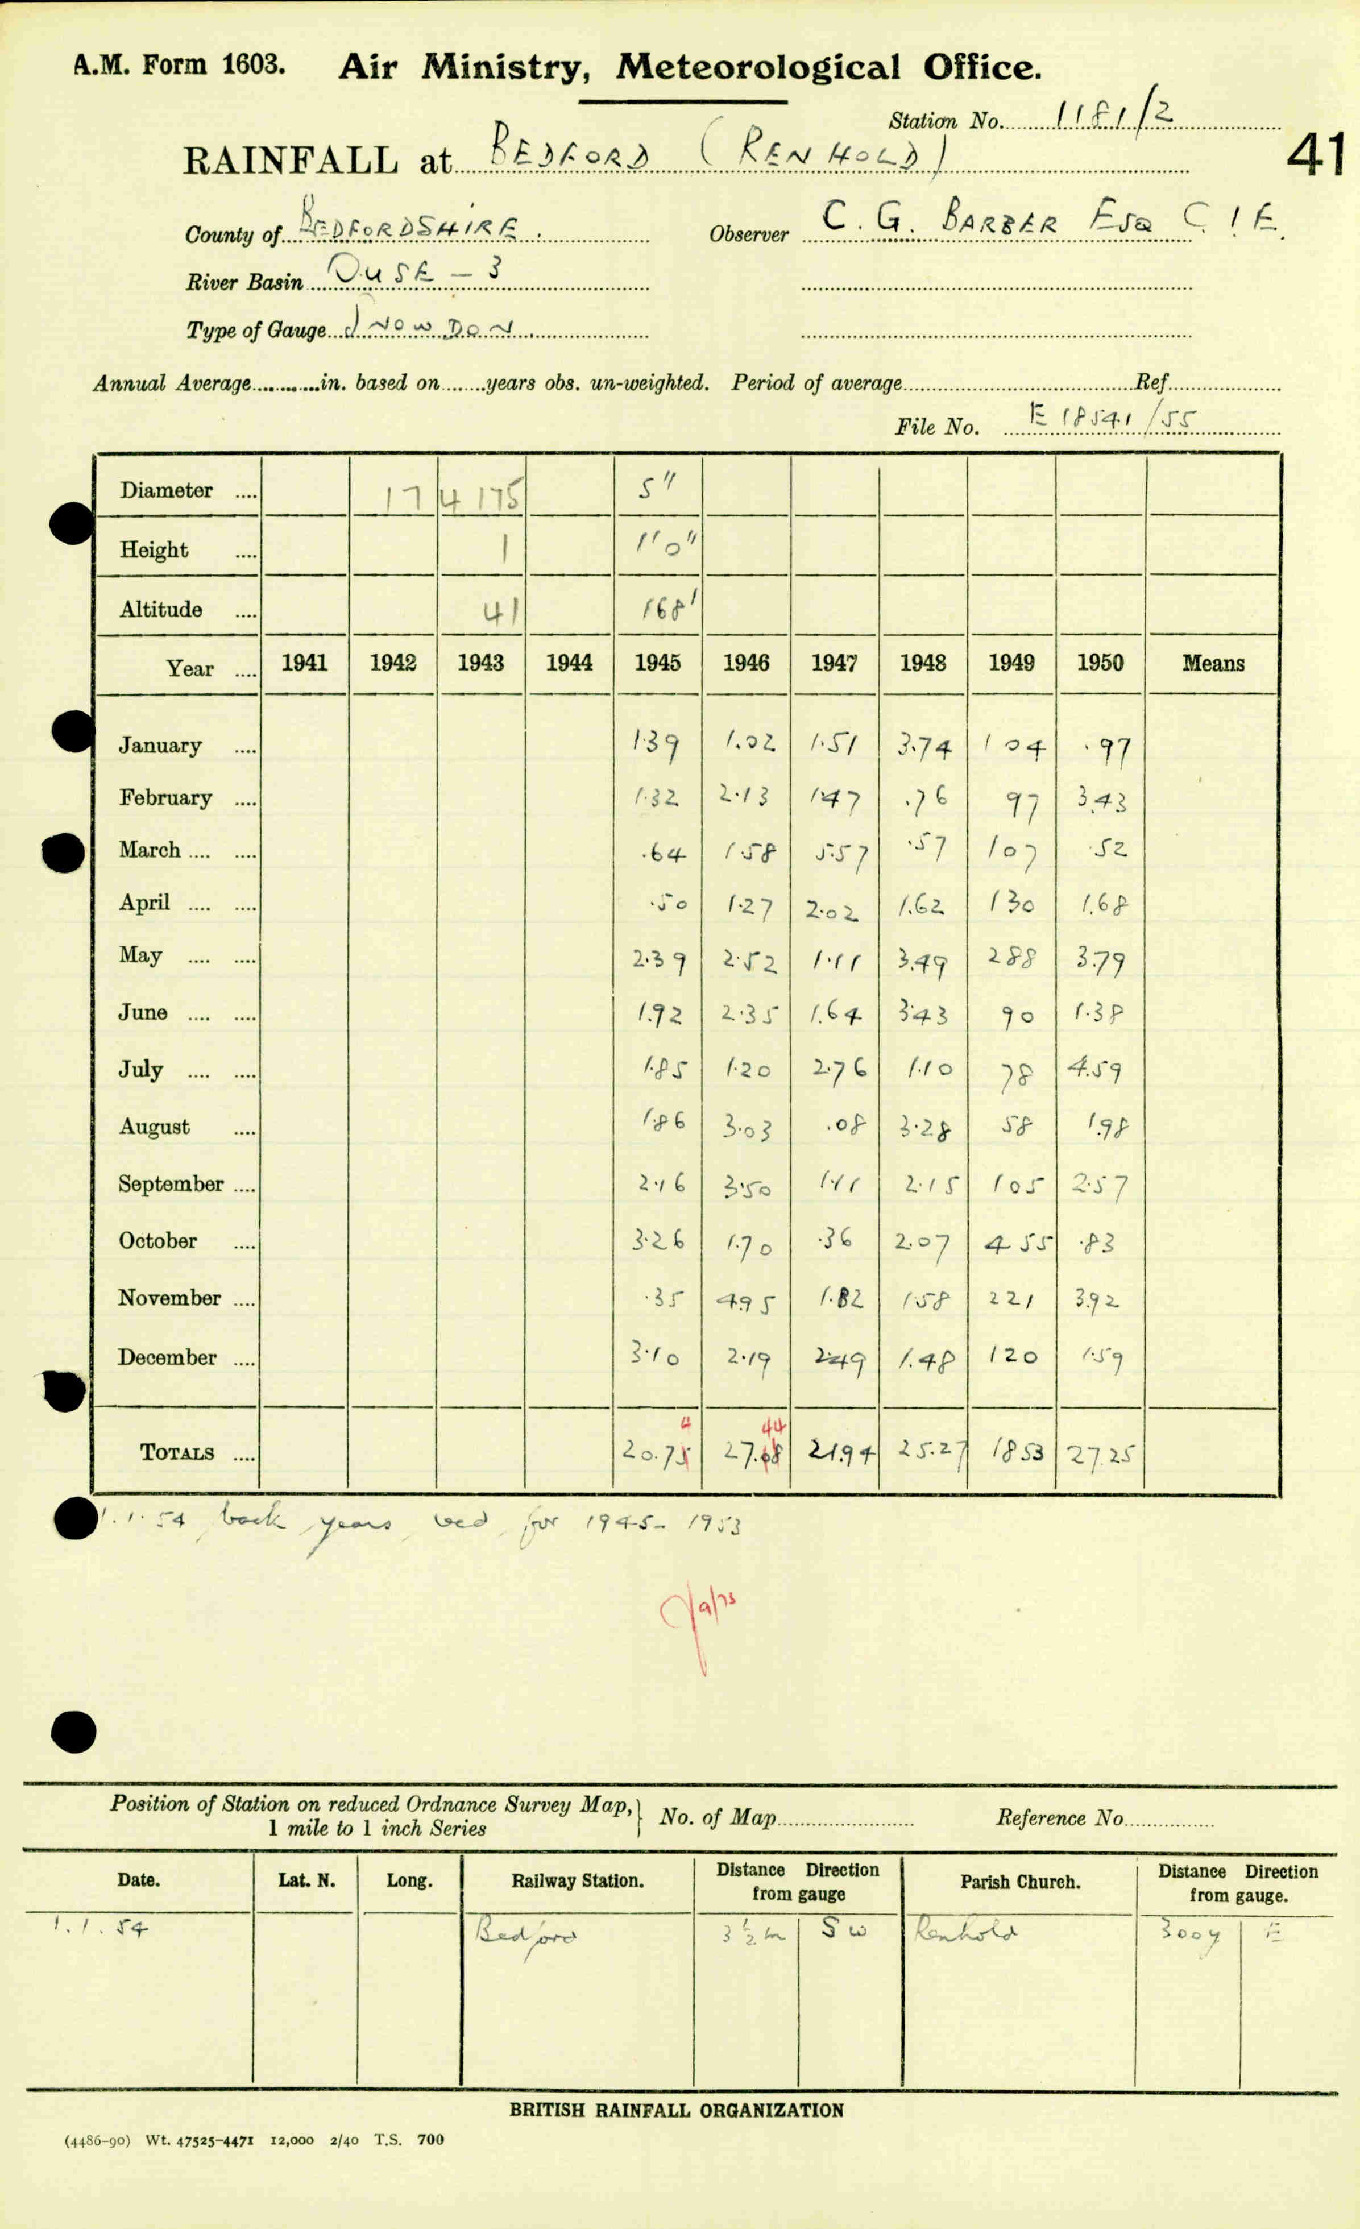 A.M. Form 1603. Air Ministry, Meteorological Office.
Station No. 1181/2
RAINFALL at BEDFORD (RENHOLD)
41
County of BEDFORDSHIRE. Observer C. G. BARBER ESQ C.I.E.
River Basin OUSE - 3
Type of Gauge SNOWDON.
Annual Average............in. based on........years obs. un-weighted. Period of average.......... Ref..........
File No. E 18541/55
Diameter .... 17 4 175 5"
Height .... 1 1'0"
Altitude .... 41 168'
Year .... 1941 1942 1943 1944 1945 1946 1947 1948 1949 1950 Means
January .... 1.39 1.02 1.51 3.74 1 04 .97
February .... 1.32 2.13 1.47 .76 97 3.43
March .... .... .64 1.58 5.57 .57 107 .52
April .... .... .50 1.27 2.02 1.62 130 1.68
May .... .... 2.39 2.52 1.11 3.49 288 3.79
June .... .... 1.92 2.35 1.64 3.43 90 1.38
July .... .... 1.85 1.20 2.76 1.10 78 4.59
August .... 1.86 3.03 .08 3.28 58 1.98
September .... 2.16 3.50 1.11 2.15 105 2.57
October .... 3.26 1.70 .36 2.07 4 55 .83
November .... .35 4.95 1.82 1.58 221 3.92
December .... 3.10 2.19 2.49 1.48 120 1.59
4 44
TOTALS .... 20.75 27.08 21.94 25.27 1853 27.25
1.1.54 back years recd for 1945-1953
9/73
Position of Station on reduced Ordnance Survey Map,} No. of Map.......... Reference No..........
1 mile to 1 inch Series
Date. Lat. N. Long. Railway Station. Distance Direction from gauge Parish Church. Distance Direction from gauge.
1.1.54 Bedford 3½ m SW Renhold 300y E
BRITISH RAINFALL ORGANIZATION
(4486-90) Wt. 47525-4471 12,000 2/40 T.S. 700